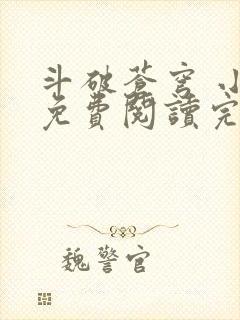 斗破蒼穹 小
免費閱讀完
魏警官